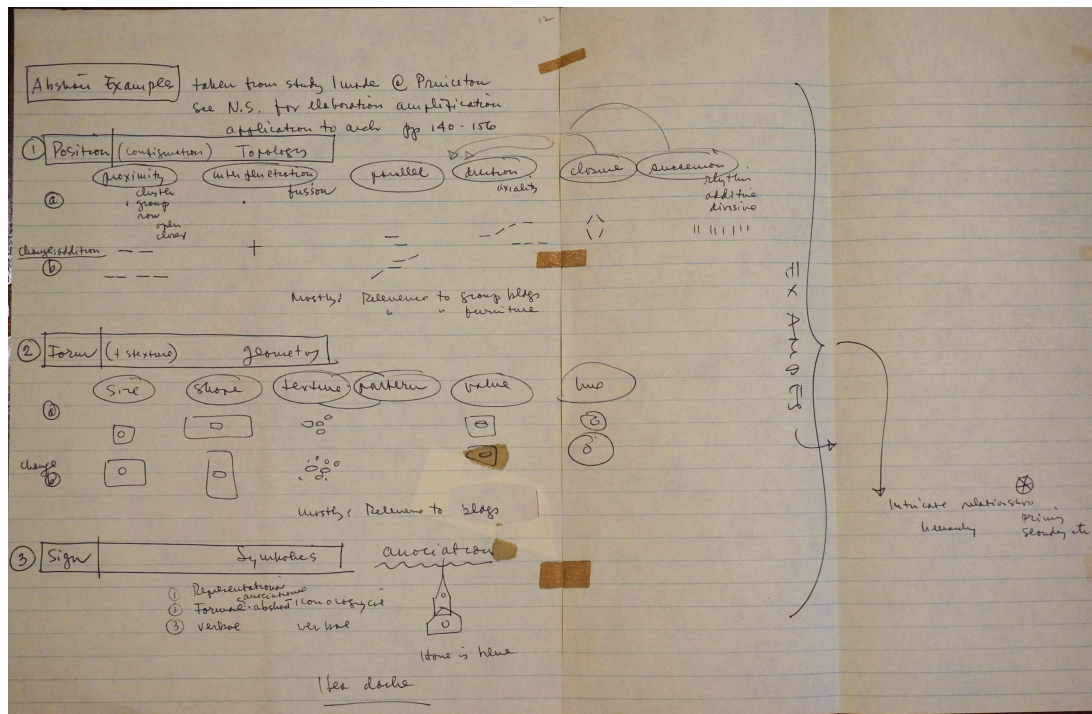 12
Abstract Examples taken from study I made @ Princeton
see N.S. for elaboration amplification
application to arch pp 140-156
1 Position (configuration) Topology
proximity interpenetration parallel direction closure succession
a
cluster fusion axiality rhythm
group additive
row divisive
open
closed
change: addition
b
Mostly: Relevence to group bldgs
" " furniture
2 Form (+ texture) geometry
size shape texture pattern value hue
a
change
b
Mostly: Relevence to bldgs
3 Sign Symbolics association
1 Representational
associational
2 Formal-abstract iconological
3 verbal verbal
is blue
Intricate relationships
hierarchy